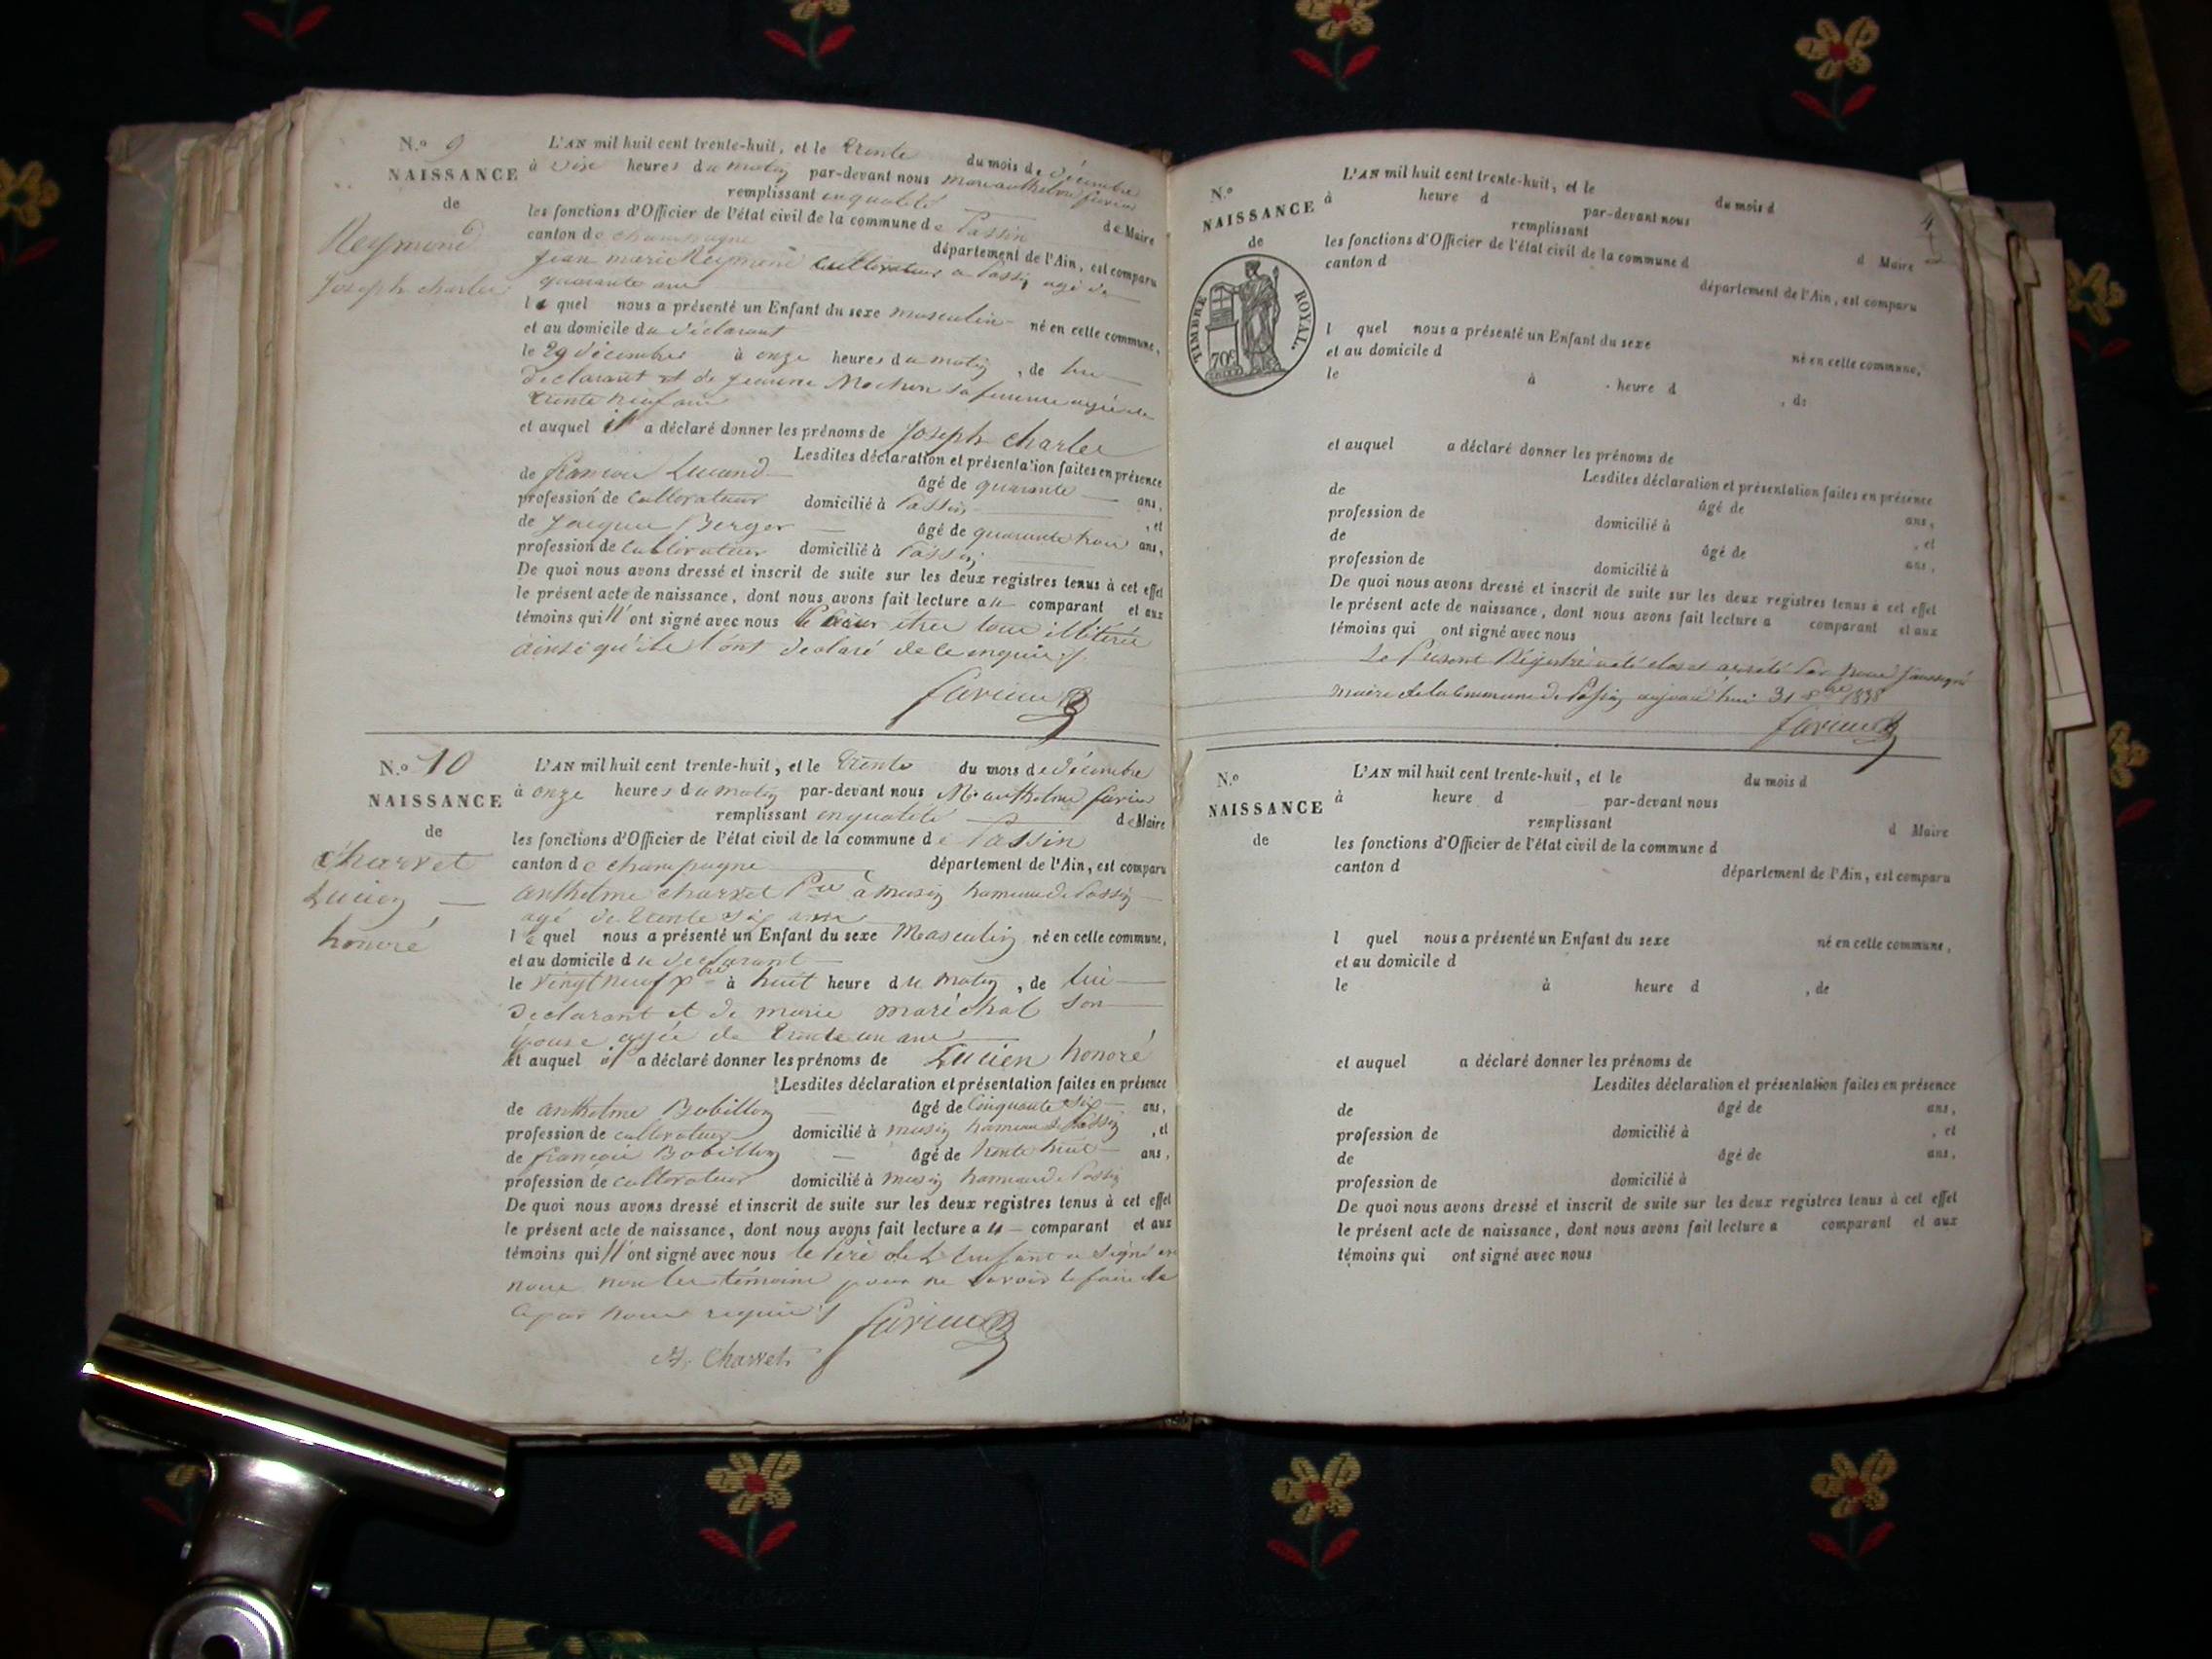 N.o 9
NAISSANCE
de
Reymond
Joseph charles
L'AN mil huit cent trente-huit, et le trente du mois de décembre
à dix heures du matin par-devant nous
remplissant en qualité de Maire
les fonctions d'Officier de l'état civil de la commune de Passin
canton de champagne département de l'Ain, est comparu
jean marie Reymond cultivateur a Passin agé de
quarante ans
le quel nous a présenté un Enfant du sexe masculin né en cette commune,
et au domicile du déclarant
le 29 décembre à onze heures du matin, de lui
declarant et de jeanne Mochon sa femme agée de
trente neuf ans
et auquel il a déclaré donner les prénoms de Joseph charles
Lesdites déclaration et présentation faites en présence
de françois Lucand âgé de quarante ans,
profession de cultivateur domicilié à Passin, et
de jacques Berger âgé de quarante trois ans,
profession de cultivateur domicilié à Passin
De quoi nous avons dressé et inscrit de suite sur les deux registres tenus à cet effet
le présent acte de naissance, dont nous avons fait lecture au comparant et aux
témoins qui n'ont signé avec nous pour être tous illitérés
ainsi qu'ils l'ont declaré de ce enquis
favieu
N.o 10
NAISSANCE
de
Charvet
Lucien
honoré
L'AN mil huit cent trente-huit, et le trente du mois de décembre
à onze heures du matin par-devant nous anthelme favieu
remplissant en qualité de Maire
les fonctions d'Officier de l'état civil de la commune de Passin
canton de champagne département de l'Ain, est comparu
anthelme charvet à musin hameau de Passin
agé de trente six ans
le quel nous a présenté un Enfant du sexe Masculin né en cette commune,
et au domicile du declarant
le vingt neuf Xbre à huit heure du matin, de lui
declarant et de marie maréchal son
épouse agée de trente un ans
et auquel il a déclaré donner les prénoms de Lucien honoré
Lesdites déclaration et présentation faites en présence
de anthelme Bobillon âgé de cinquante six ans,
profession de cultivateur domicilié à musin hameau de Passin, et
de françois Bobillon âgé de trente huit ans,
profession de cultivateur domicilié à musin hameau de Passin
De quoi nous avons dressé et inscrit de suite sur les deux registres tenus à cet effet
le présent acte de naissance, dont nous avons fait lecture au comparant et aux
témoins qui n'ont signé avec nous le père de l'enfant a signé avec
nous non les témoins pour ne savoir le faire de
ce par nous requis
favieu
A. Charvet
4
N.o
NAISSANCE
de
TIMBRE ROYAL.
70c
L'AN mil huit cent trente-huit, et le du mois d
à heure d par-devant nous
remplissant d Maire
les fonctions d'Officier de l'état civil de la commune d
canton d département de l'Ain, est comparu
l quel nous a présenté un Enfant du sexe né en cette commune,
et au domicile d
le à heure d , de
et auquel a déclaré donner les prénoms de
Lesdites déclaration et présentation faites en présence
de âgé de ans,
profession de domicilié à , et
de âgé de ans,
profession de domicilié à
De quoi nous avons dressé et inscrit de suite sur les deux registres tenus à cet effet
le présent acte de naissance, dont nous avons fait lecture a comparant et aux
témoins qui ont signé avec nous
Le Présent Régistre a été clos et arreté Par nous soussigné
maire de la Commune de Passin aujourd'hui 31 1838
favieu
N.o
NAISSANCE
de
L'AN mil huit cent trente-huit, et le du mois d
à heure d par-devant nous
remplissant d Maire
les fonctions d'Officier de l'état civil de la commune d
canton d département de l'Ain, est comparu
l quel nous a présenté un Enfant du sexe né en cette commune,
et au domicile d
le à heure d , de
et auquel a déclaré donner les prénoms de
Lesdites déclaration et présentation faites en présence
de âgé de ans,
profession de domicilié à , et
de âgé de ans,
profession de domicilié à
De quoi nous avons dressé et inscrit de suite sur les deux registres tenus à cet effet
le présent acte de naissance, dont nous avons fait lecture a comparant et aux
témoins qui ont signé avec nous